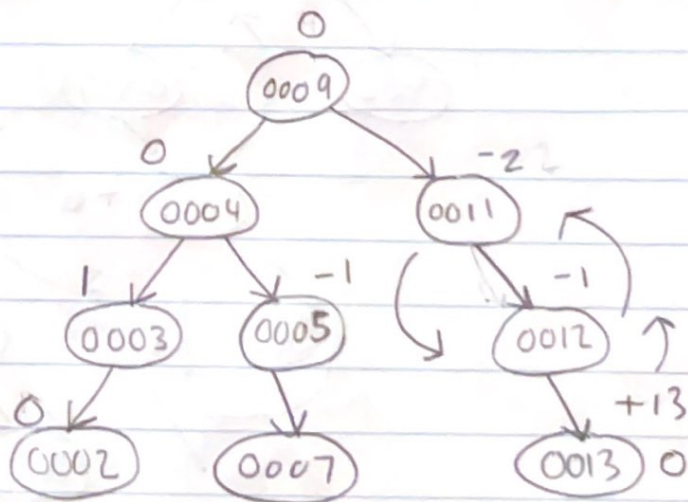 0
0009
0 -2
0004 0011
1 -1 -1
0003 0005 0012
0 +13
0002 0007 0013 0